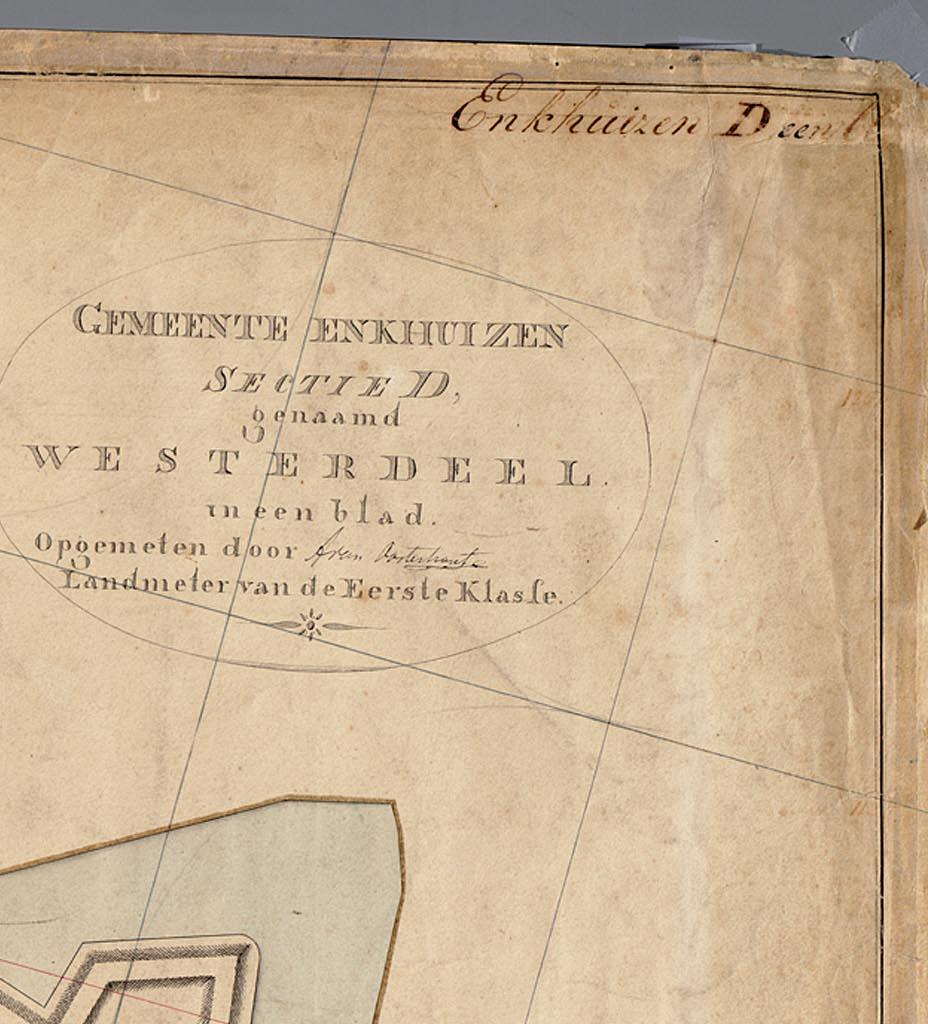 Enkhuizen D een
GEMEENTE ENKHUIZEN
SECTIE D,
genaamd
WESTERDEEL.
in een blad.
Opgemeten door Oosterhout
Landmeter van de Eerste Klasse.